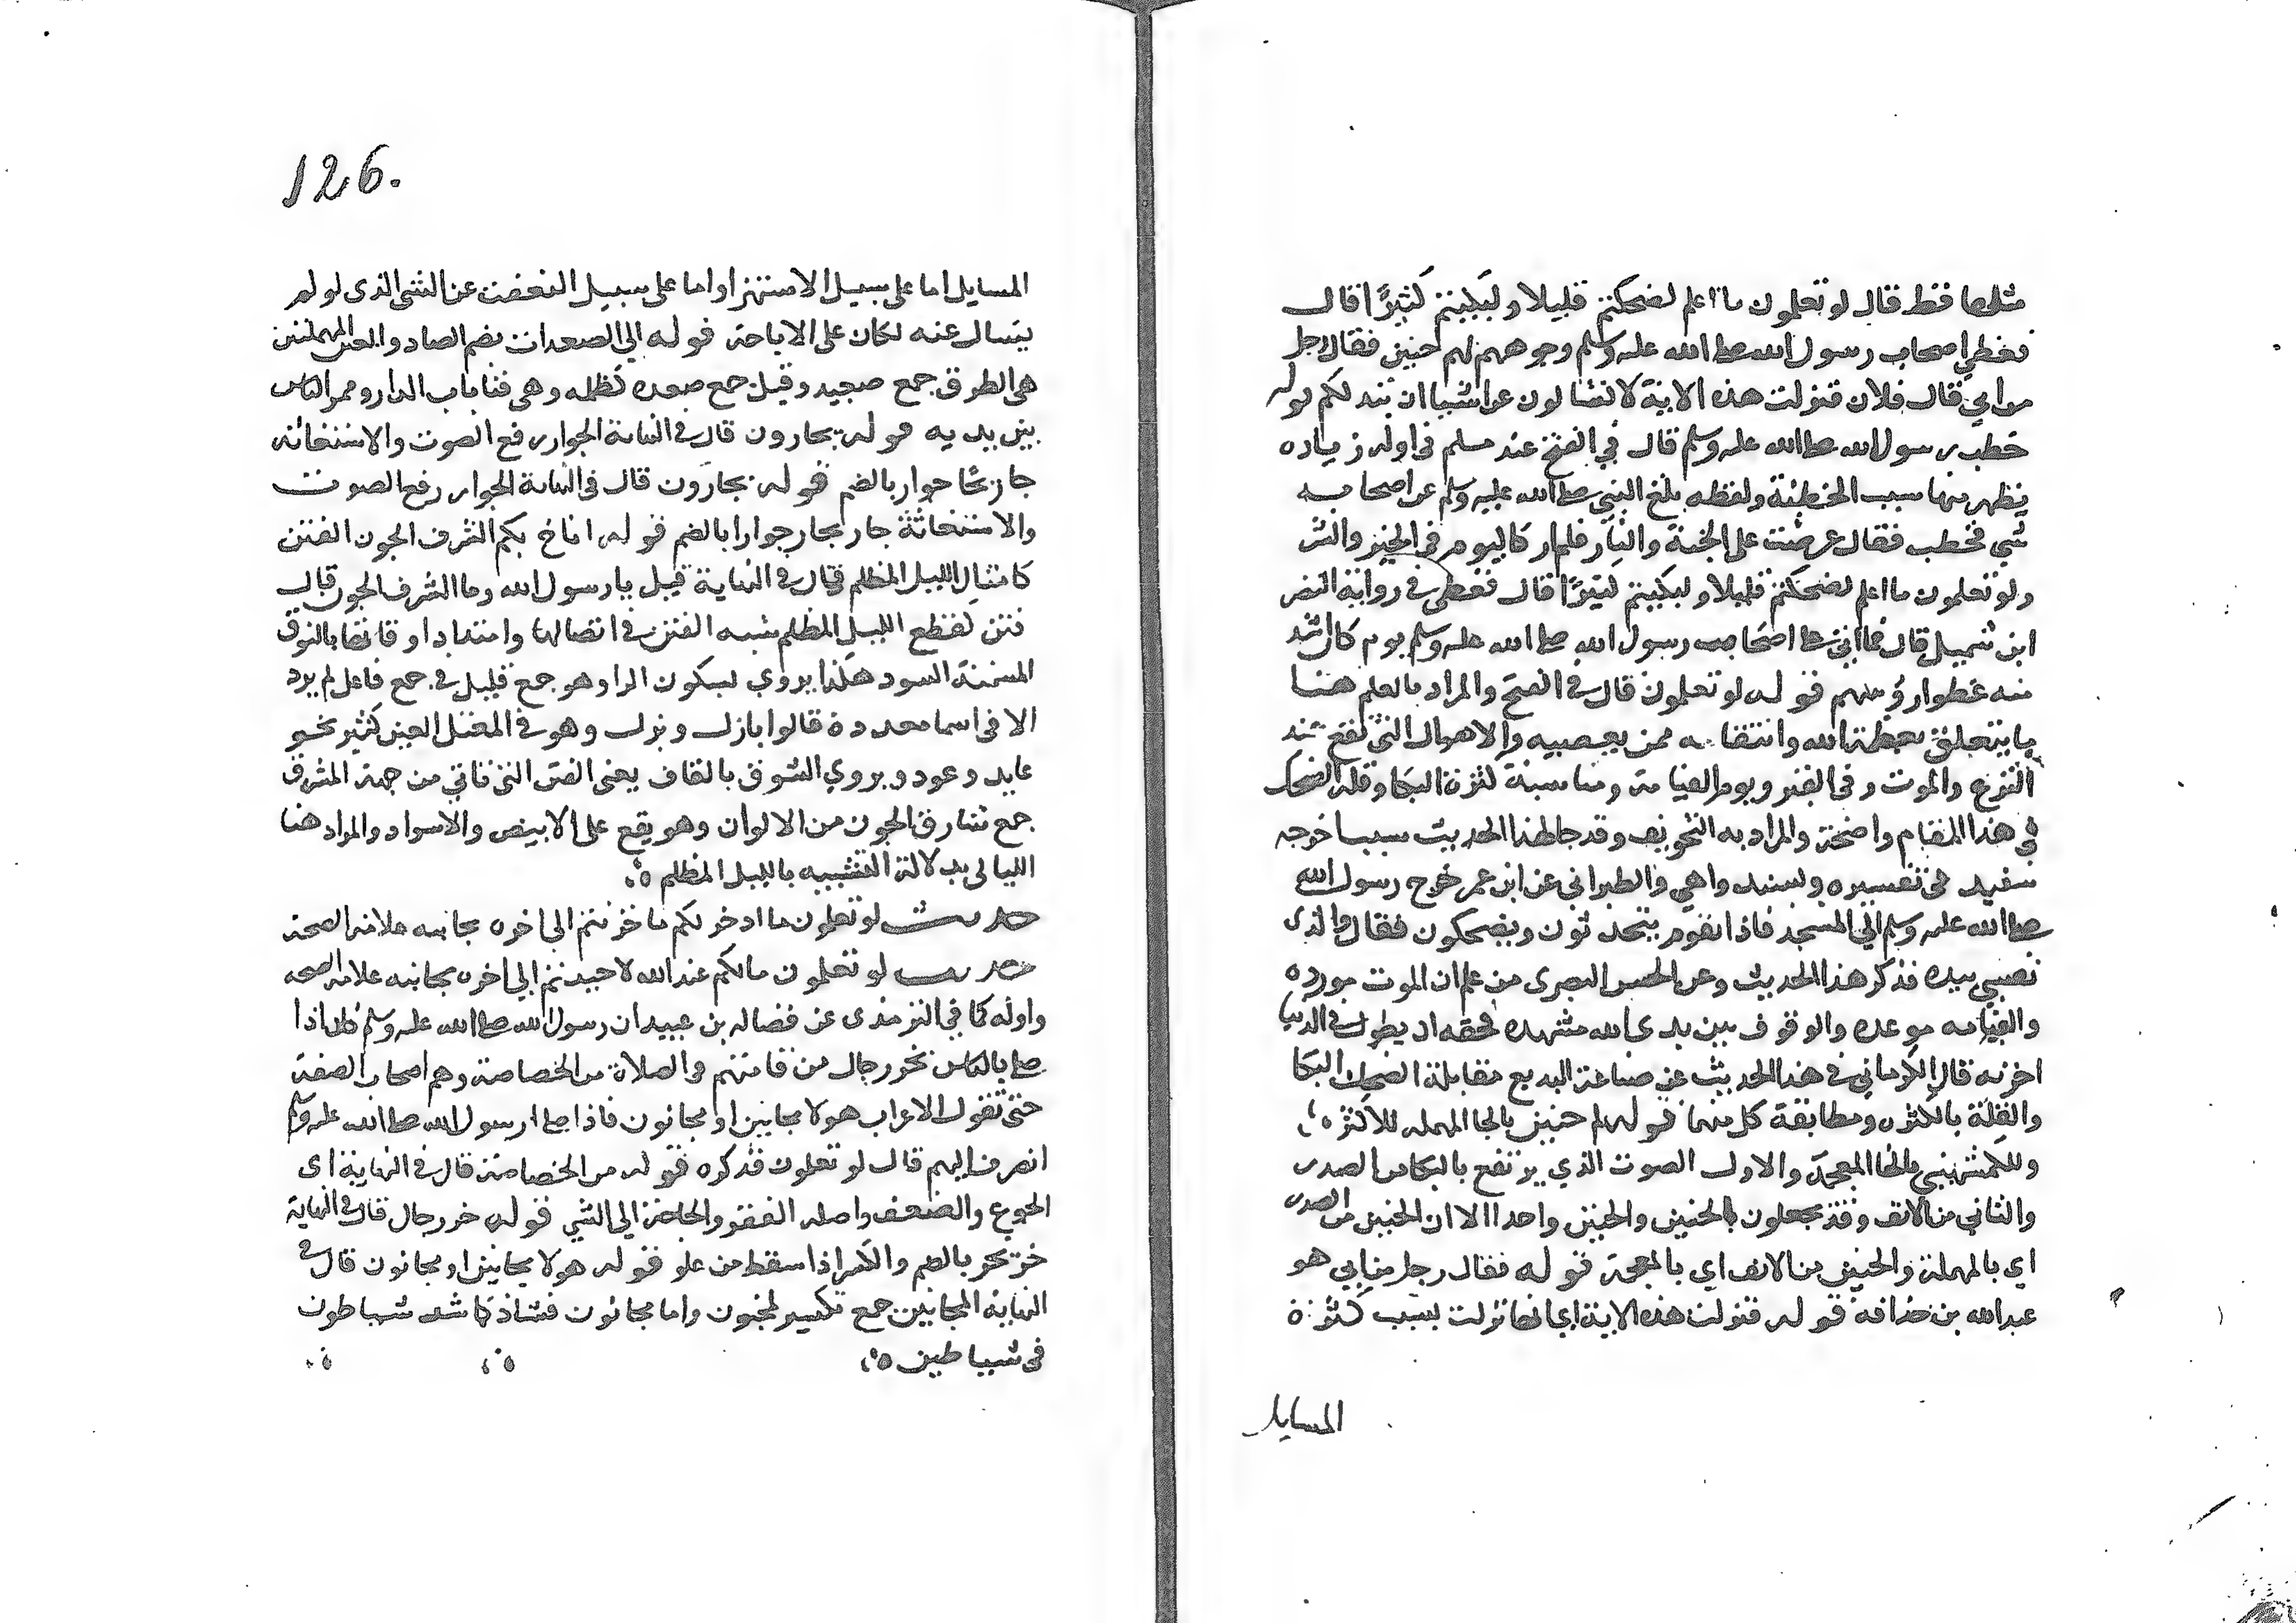 مثلها قط قال لو تعلمون ما اعلم لضحكتم قليلا ولبكيتم كثيرًا قال
فغطي اصحاب رسول الله صلى الله عليه وسلم وجوههم لهم حنين فقال رجل
من ابي قال فلان فنزلت هذه الاية لا تسالون عن اشيا ان تبد لكم قوله
خطب رسول الله صلى الله عليه وسلم قال في الفتح عند مسلم في اوله زياده
يظهر منها سبب الخطبة ولفظه بلغ النبي صلى الله عليه وسلم عن اصحابه
شي فخطب فقال عرضت على الجنة والنار فلم ار كاليوم في الخير والشر
ولو تعلمون ما اعلم لضحكتم قليلا ولبكيتم كثيرًا قال فغطى في رواية النضر
ابن شميل قال فما اتى على اصحاب رسول الله صلى الله عليه وسلم يوم كان اشد
منه غطوا رؤسهم قوله لو تعلمون قال في الفتح والمراد بالعلم هنا
ما يتعلق بعظمة الله وانتقامه ممن يعصيه والاهوال التي تقع عند
النزع والموت وفي القبر ويوم القيامة ومناسبة كثرة البكا وقلة الضحك
في هذا المقام واضحة والمراد به التخويف وقد جا لهذا الحديث سبب اخرجه
سنيد في تفسيره بسند واهي والطبراني عن ابن عمر خرج رسول الله
صلى الله عليه وسلم الي المسجد فاذا بقوم يتحدثون ويضحكون فقال والذى
نفسي بيده فذكر هذا الحديث وعن الحسن البصرى من علم ان الموت مورده
والقيامه موعده والوقوف بين يدى الله مشهده فحقه ان يطول في الدنيا
احزنه قال الكرماني في هذا الحديث من صناعة البديع مقابلة الضحك بالبكا
والقلة بالكثره ومطابقة كل منهما قوله لهم حنين بالحا المهمله للاكثر
وللكشميهني بالخا المعجمة والاول الصوت الذي يرتفع بالبكا من الصدر
والثاني من الانف وقد يجعلون الحنين والخنين واحدا الا ان الحنين من الصدر
اي بالمهملة والخنين من الانف اي بالمعجمة قوله فقال رجل من ابي هو
عبد الله بن حذافة قوله فنزلت هذه الاية اي انها نزلت بسبب كثرة
المسايل
126.
المسايل اما على سبيل الاستهزا واما على سبيل التعنت عن الشى الذى لو لم
يسال عنه لكان على الاباحة قوله الي الصعدات بضم الصاد والعين المهملتين
هي الطرق جمع صعيد وقيل جمع صعده كظلمه وهى فنا باب الدار وممر الناس
بين يديه قوله تجارون قال في النهاية الجوار رفع الصوت والاستغاثه
جار يجا جوار بالضم قوله تجارون قال في النهاية الجوار رفع الصوت
والاستغاثة جار يجار جوارا بالضم قوله اناخ بكم الشرف الجون الفتن
كامثال الليل المظلم قال في النهاية قيل يا رسول الله وما الشرف الجون قال
فتن كقطع الليل المظلم شبه الفتن في اتصالها وامتداد اوقاتها بالنوق
المسنة السود هكذا يروي بسكون الرا وهو جمع قليل في جمع فاعل لم يرد
الا في اسما معدودة قالوا بازل وبزل وهو في المعتل العين كثير نحو
عايد وعود ويروي الشوق بالقاف يعنى الفتن التي تاتي من جهة المشرق
جمع شارق الجون من الالوان وهو يقع على الابيض والاسواد والمراد هنا
الليالى بدلالة التشبيه بالليل المظلم
حديث لو تعلمون ما ادخر لكم ما حزنتم الى اخره بجانبه علامة الصحة
حديث لو تعلمون مالكم عند الله لاحببتم الي اخره بجانبه علامة الصحه
واوله كما في الترمذى عن فضاله بن عبيد ان رسول الله صلى الله عليه وسلم كان اذا
صلى بالناس نخر رجال من قامتهم في الصلاة من الخصاصة وهم اصحاب الصفة
حتى تقول الاعراب هولا مجانين او مجانون فاذا صلى رسول الله صلى الله عليه وسلم
انصرف اليهم قال لو تعلمون فذكره قوله من الخصاصة قال في النهاية اى
الجوع والضعف واصله الفقر والحاجة الي الشي قوله خر رجال قال في النهاية
خر يخر بالضم والكسر اذا سقط من علو قوله هولا مجانين او مجانون قال في
النهاية المجانين جمع تكسير لمجنون واما مجانون فشاذ كما شد شياطون
في شياطين